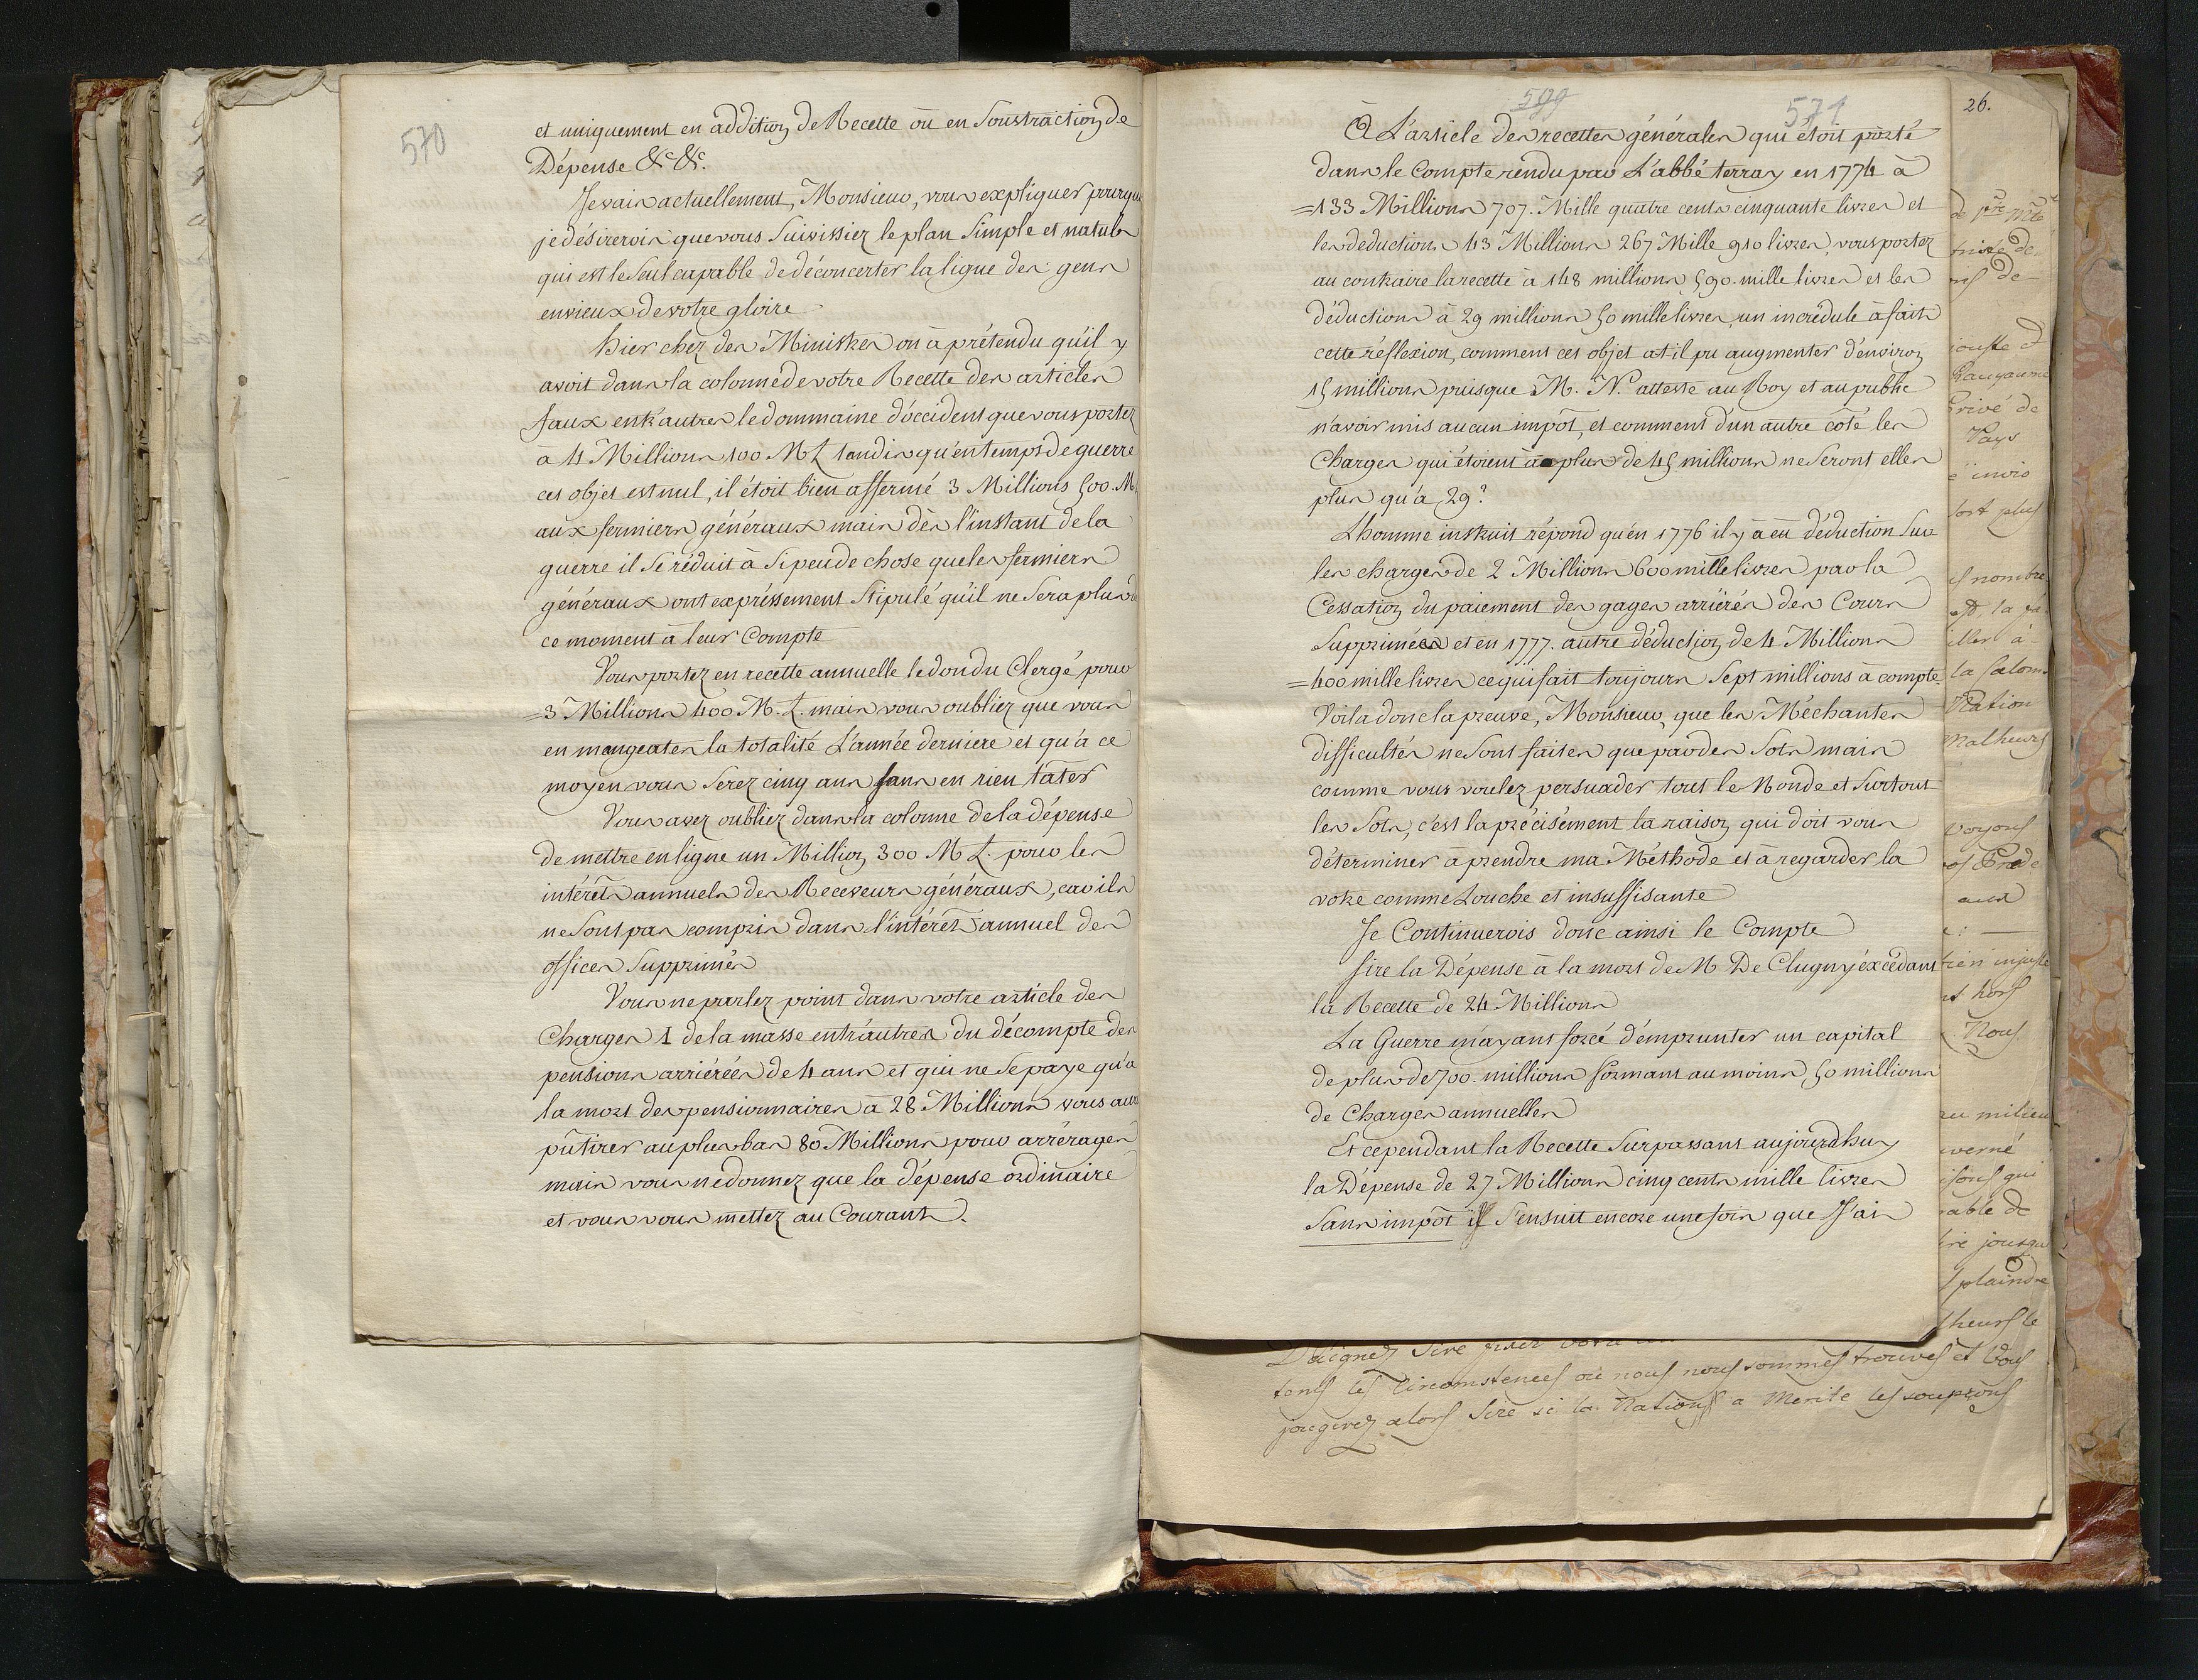 570
et uniquement en addition de Recette ou en Soustraction de
Dépense &c &c.
Je vais actuellement, Monsieur, vous expliquer pourquo
je désirerois que vous Suivissiez le plan Simple et naturel
qui est le Seul capable de déconcerter la ligue des gens
envieux de votre gloire
hier chez des Ministres on à prétendu qu'il y
avoit dans la colonne de votre Recette des articles
faux entr'autres le dommaine d'occident que vous portez
à 4 Millions 100 M ₶ tandis qu'en temps de guerre
cet objet est nul, il étoit bien affermé 3 Millions 500. M
aux fermiers généraux mais dès l'instant de la
guerre il Se réduit à Si peu de chose que les fermiers
généraux ont expréssement Stipulé qu'il ne Sera plus de
ce moment à leur Compte
Vous portez en recette annuelle le don du Clergé pour
=3 Millions 400 M. ₶. mais vous oubliez que vous
en mangeates la totalité L'année derniere et qu'a ce
moyen vous Serez cinq ans sans en rien tâter
Vous avez oubliez dans la colonne de la dépense
de mettre en ligne un Million 300 M ₶. pour les
intérêts annuels des Receveurs généraux, car ils
ne Sont pas compris dans l'intérêt annuel des
offices Supprimés
Vous ne parlez point dans votre article des
Charges 1 de la masse entr'autres du décompte des
pensions arriérées de 4 ans et qui ne Se paye qu'a
la mort des pensionnaires à 28 Millions vous aur
pû tirer au plus bas 80 Millions pour arrérages
mais vous ne donnez que la dépense ordinaire
et vous vous mettez au Courant.
599
571
A L'article des recettes générales qui étoit porté
dans le Compte rendu par L'abbé terray en 1774 à
=133 Millions 707. Mille quatre cents cinquante livres et
les deductions 43 Millions 267 Mille 910 livres, vous portez
au contraire la recette à 148 millions 590. mille livres et les
déductions à 29 millions 50 mille livres, un incrédule à fait
cette réflexion, comment cet objet at'il pu augmenter d'environ
15 millions puisque M. N. atteste au Roy et au public
n'avoir mis aucun impôt, et comment d'un autre coté les
Charges qui étoient à plus de 45 millions ne Seront elles
plus qu'a 29?
L'homme instruit répond qu'en 1776 il y à eu déduction Sur
les charges de 2 Millions 600 mille livres par la
Cessation du paiement des gages arriérés des Cours
Supprimées et en 1777. autre déduction de 4 Millions
=400 mille livres ce qui fait toujours Sept millions à compte.
Voila donc la preuve, Monsieur, que les Méchantes
difficultés ne Sont faites que par des Sots mais
comme vous voulez persuader tout le Monde et Surtout
les Sots, c'est la précisément la raison qui doit vous
déterminer à prendre ma Méthode et à regarder la
votre comme Louche et insuffisante
Je Continuerois donc ainsi le Compte
Sire la Dépense à la mort de M. De Clugny éxcédant
la Recette de 24 Millions
La Guerre m'ayant forcé d'emprunter un capital
de plus de 700. millions formant au moins 50 millions
de Charges annuelles
Et cependant la Recette Surpassant aujourdhuy
la Dépense de 27 Millions cinq cents mille livres
Sans impôt il S'ensuit encore une fois que J'ai
26.
de
Privé de
Pays
fort plus
nombre
la
Nation
Malheurs
voyons
injuste
hors
Nous
au milieu
qui
plaindre
Daignez Sire
tems les circonstences où nous nous sommes trouvés et Vous
jougerez alors Sire si la Nation a Merité les soupçons